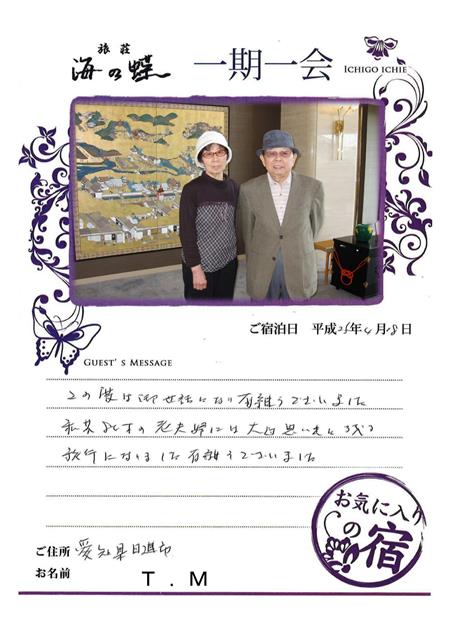 旅荘
海の蝶
一期一会
ICHIGO ICHIE
ご宿泊日 平成26年4月18日
GUEST'S MESSAGE
この度は御世話になり有難うございました
老夫婦には大的思い出に残る
旅行になりました有難うございました
お気に入り
の
宿
ご住所 愛知県日進市
お名前 T.M